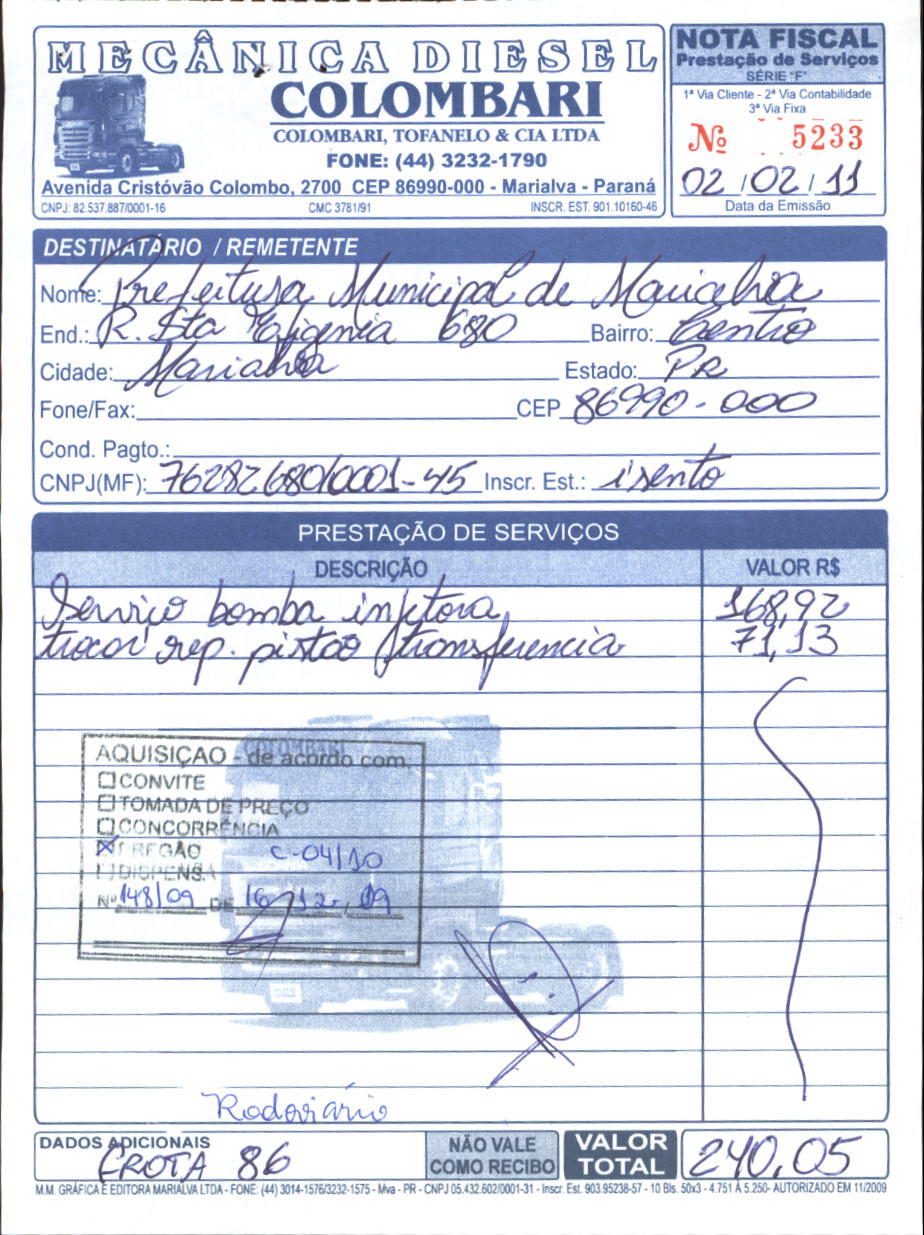 MECÂNICA DIESEL
COLOMBARI
COLOMBARI, TOFANELO & CIA LTDA
FONE: (44) 3232-1790
Avenida Cristóvão Colombo, 2700 CEP 86990-000 - Marialva - Paraná
CNPJ: 82.537.887/0001-16 CMC 3781/91 INSCR. EST. 901.10160-46
NOTA FISCAL
Prestação de Serviços
SÉRIE "F"
1ª Via Cliente - 2ª Via Contabilidade
3ª Via Fixa
Nº 5233
02 / 02 / 11
Data da Emissão
DESTINATÁRIO / REMETENTE
Nome: Prefeitura Municipal de Marialva
End.: R. Sta Efigenia 680 Bairro: Centro
Cidade: Marialva Estado: PR
Fone/Fax: CEP 86990-000
Cond. Pagto.:
CNPJ(MF): 76282680/0001-45 Inscr. Est.: isento
PRESTAÇÃO DE SERVIÇOS
DESCRIÇÃO VALOR R$
Serviço bomba injetora 168,92
trocar rep. pistao transferencia 71,13
COLOMBARI
AQUISIÇAO - de acordo com.
CONVITE
TOMADA DE PREÇO
CONCORRÊNCIA
PREGÃO C-04/10
DISPENSA
Nº 148/09 DE 16, 12, 09
Rodoviário
DADOS ADICIONAIS
FROTA 86
NÃO VALE
COMO RECIBO
VALOR
TOTAL
240,05
M.M. GRÁFICA E EDITORA MARIALVA LTDA - FONE: (44) 3014-1576/3232-1575 - Mva - PR - CNPJ 05.432.602/0001-31 - Inscr. Est. 903.95238-57 - 10 Bls. 50x3 - 4.751 À 5.250- AUTORIZADO EM 11/2009